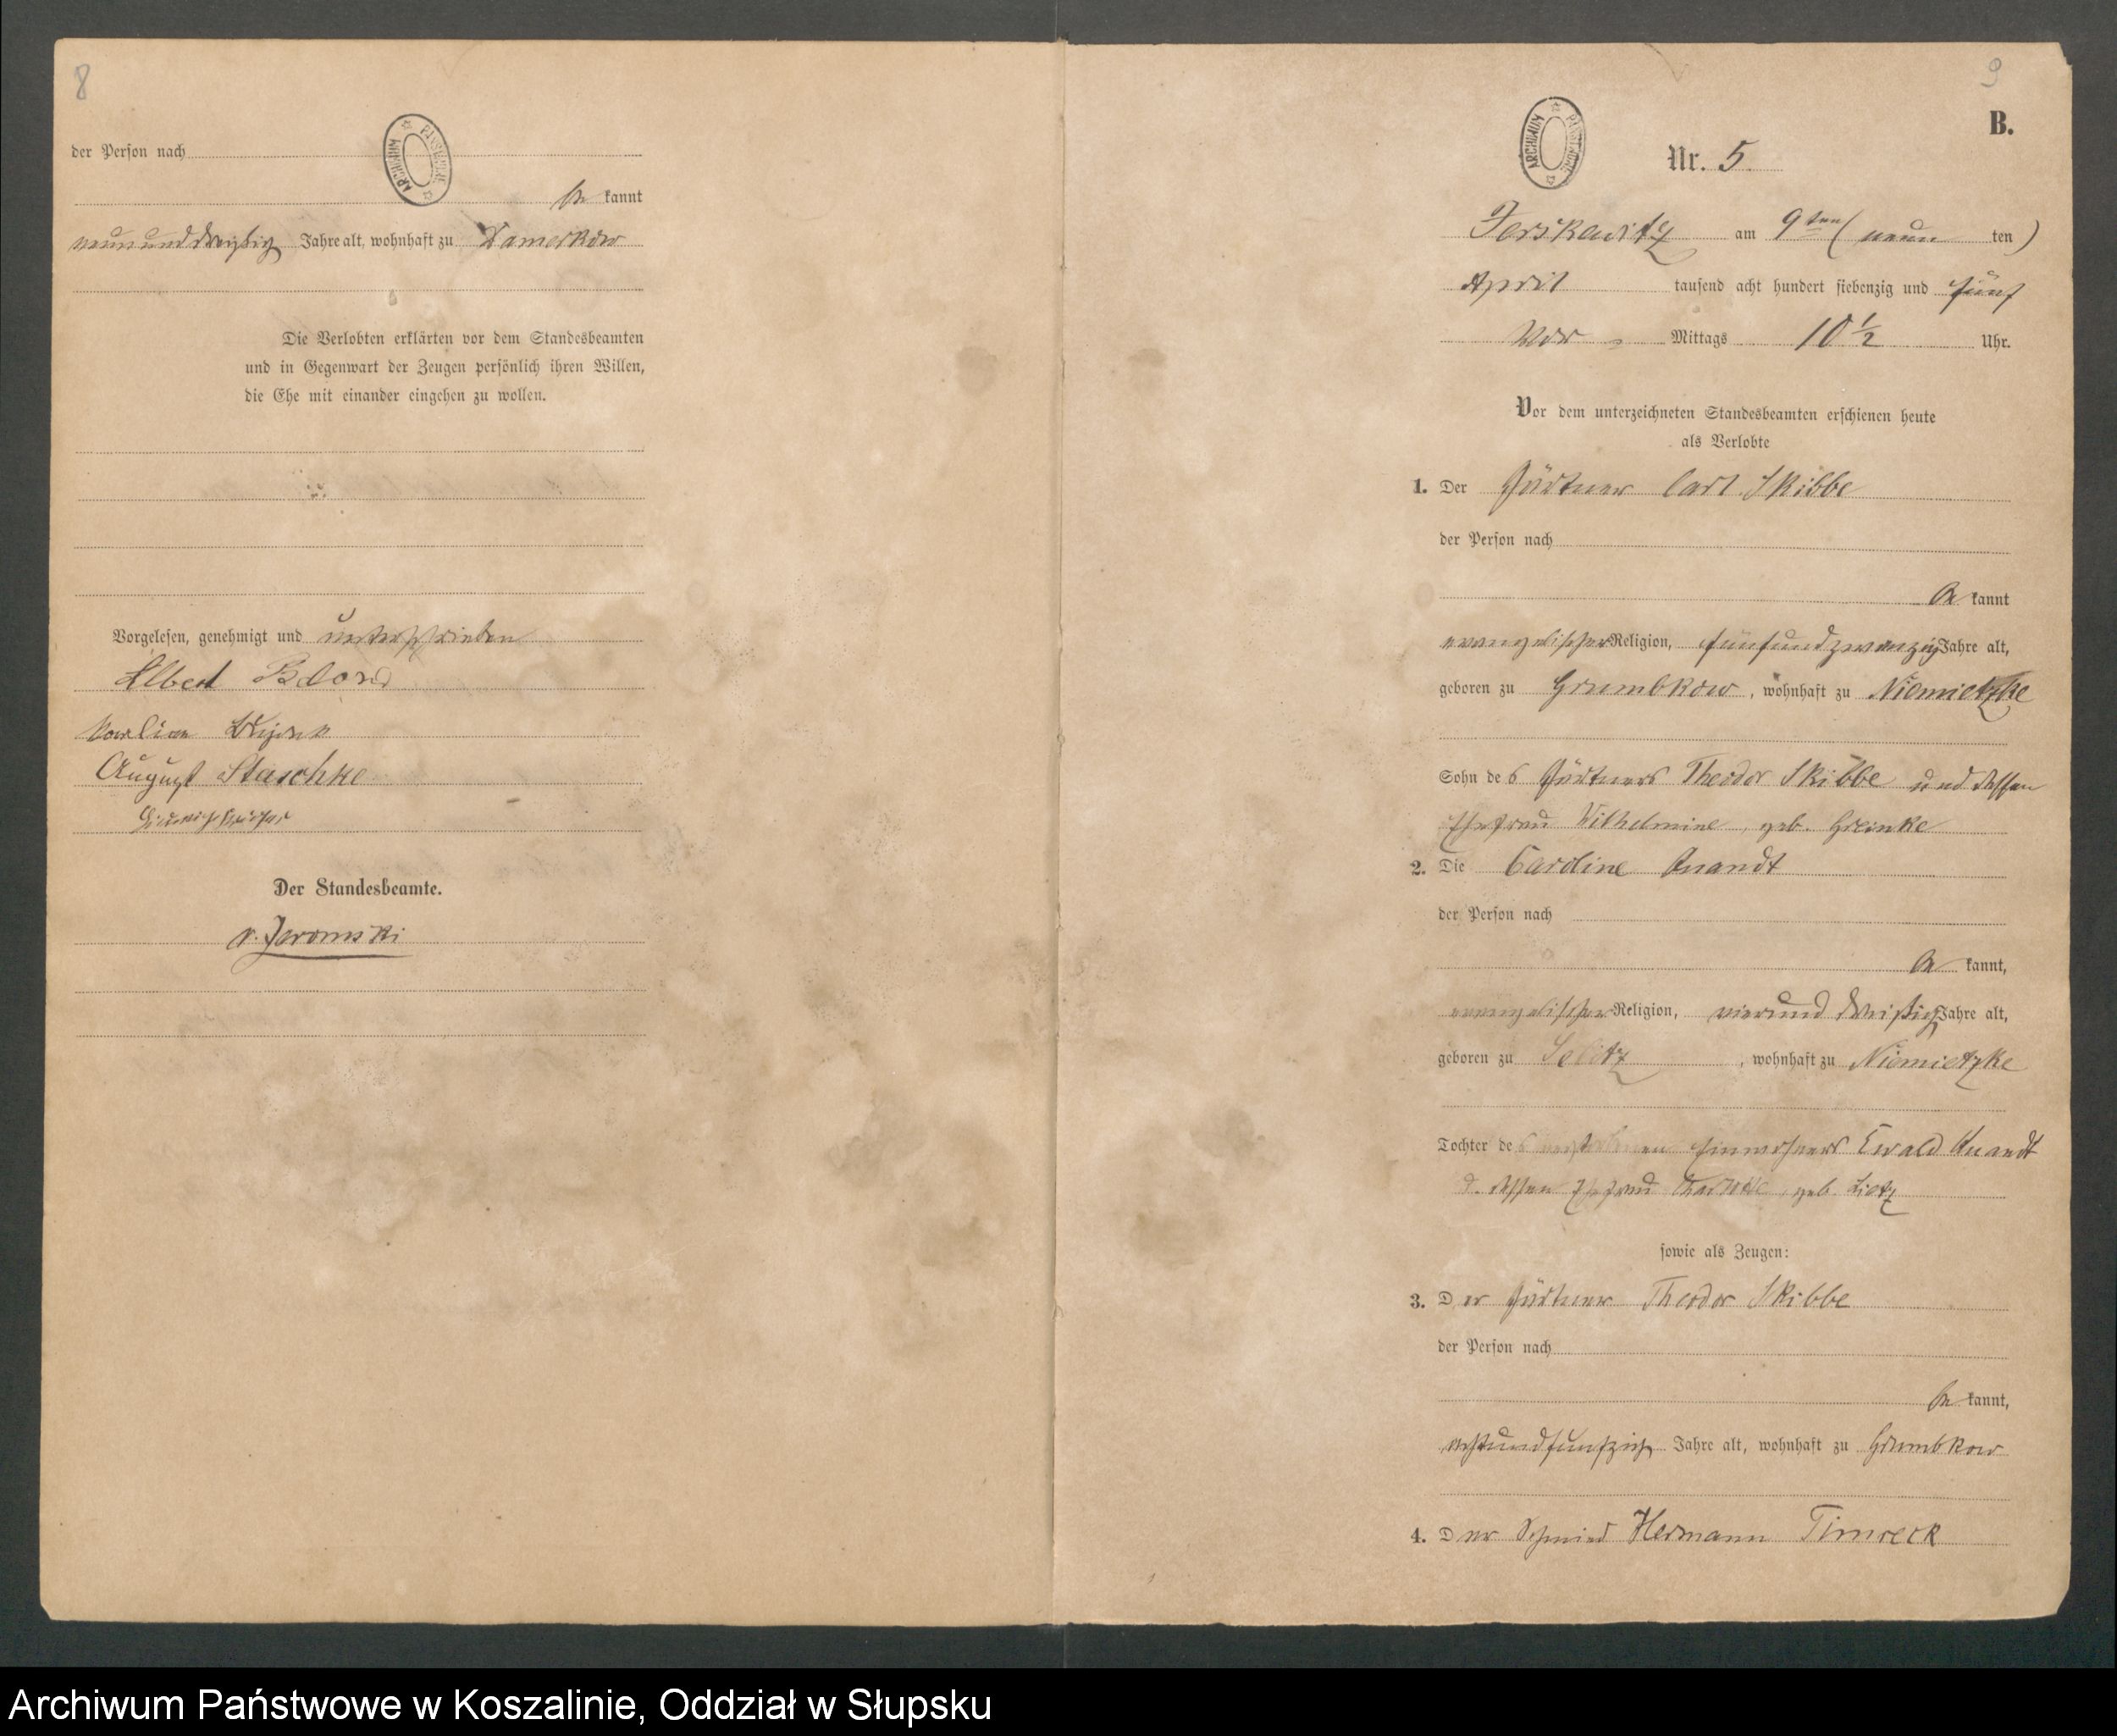 8
ARCHIWUM PAŃSTWOWE
der Person nach
be kannt
neununddreißig Jahre alt, wohnhaft zu Damerkow
Die Verlobten erklärten vor dem Standesbeamten
und in Gegenwart der Zeugen persönlich ihren Willen,
die Ehe mit einander eingehen zu wollen.
Vorgelesen, genehmigt und unterschrieben
Albert
August Staschke
Der Standesbeamte.
9
B.
ARCHIWUM PAŃSTWOWE
Nr. 5.
Jerskewitz am 9ten ( neun ten )
April tausend acht hundert siebenzig und fünf
Vor - Mittags 10 ½ Uhr.
Vor dem unterzeichneten Standesbeamten erschienen heute
als Verlobte
1. Der Gärtner Carl Skibbe
der Person nach
be kannt
evangelischer Religion, fünfundzwanzig Jahre alt,
geboren zu Grumbkow, wohnhaft zu Niemietzke
Sohn des Gärtners Theodor Skibbe und dessen
Ehefrau Wilhelmine, geb. Greinke
2. Die Caroline Quandt
der Person nach
be kannt,
evangelischer Religion, vierunddreißig Jahre alt,
geboren zu , wohnhaft zu Niemietzke
Tochter des verstorbenen Einwohners Ewald Quandt
u. dessen Ehefrau geb. Lietz
sowie als Zeugen:
3. Der Gärtner Theodor Skibbe
der Person nach
be kannt,
achtundfunfzig Jahre alt, wohnhaft zu Grumbkow
4. Der Schmied Hermann Timreck
Archiwum Państwowe w Koszalinie, Oddział w Słupsku